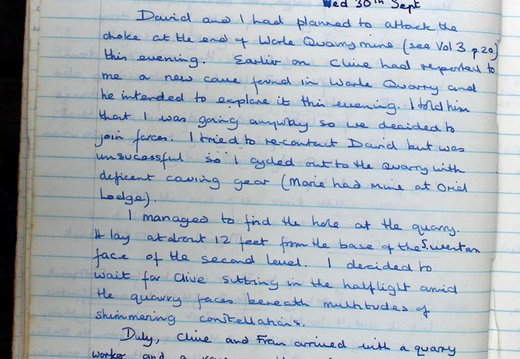 Wed 30th Sept
David and I had planned to attack the
choke at the end of Worle Quarry mine (see Vol 3 p.20)
this evening. Earlier on Clive had reported to
me a new cave found in Worle Quarry and
he intended to explore it this evening. I told him
that I was going anyway so we decided to
join forces. I tried to recontact David but was
unsuccessful so I cycled out to the Quarry with
deficent caving gear (Marie had mine at Oriel
Lodge).
I managed to find the hole at the quarry.
It lay at about 12 feet from the base of the
face of the second level. I decided to
wait for Clive sitting in the halflight amid
the quarry faces beneath multitudes of
shimmering constellations.
Duly, Clive and Fran arrived with a quarry
worker and a